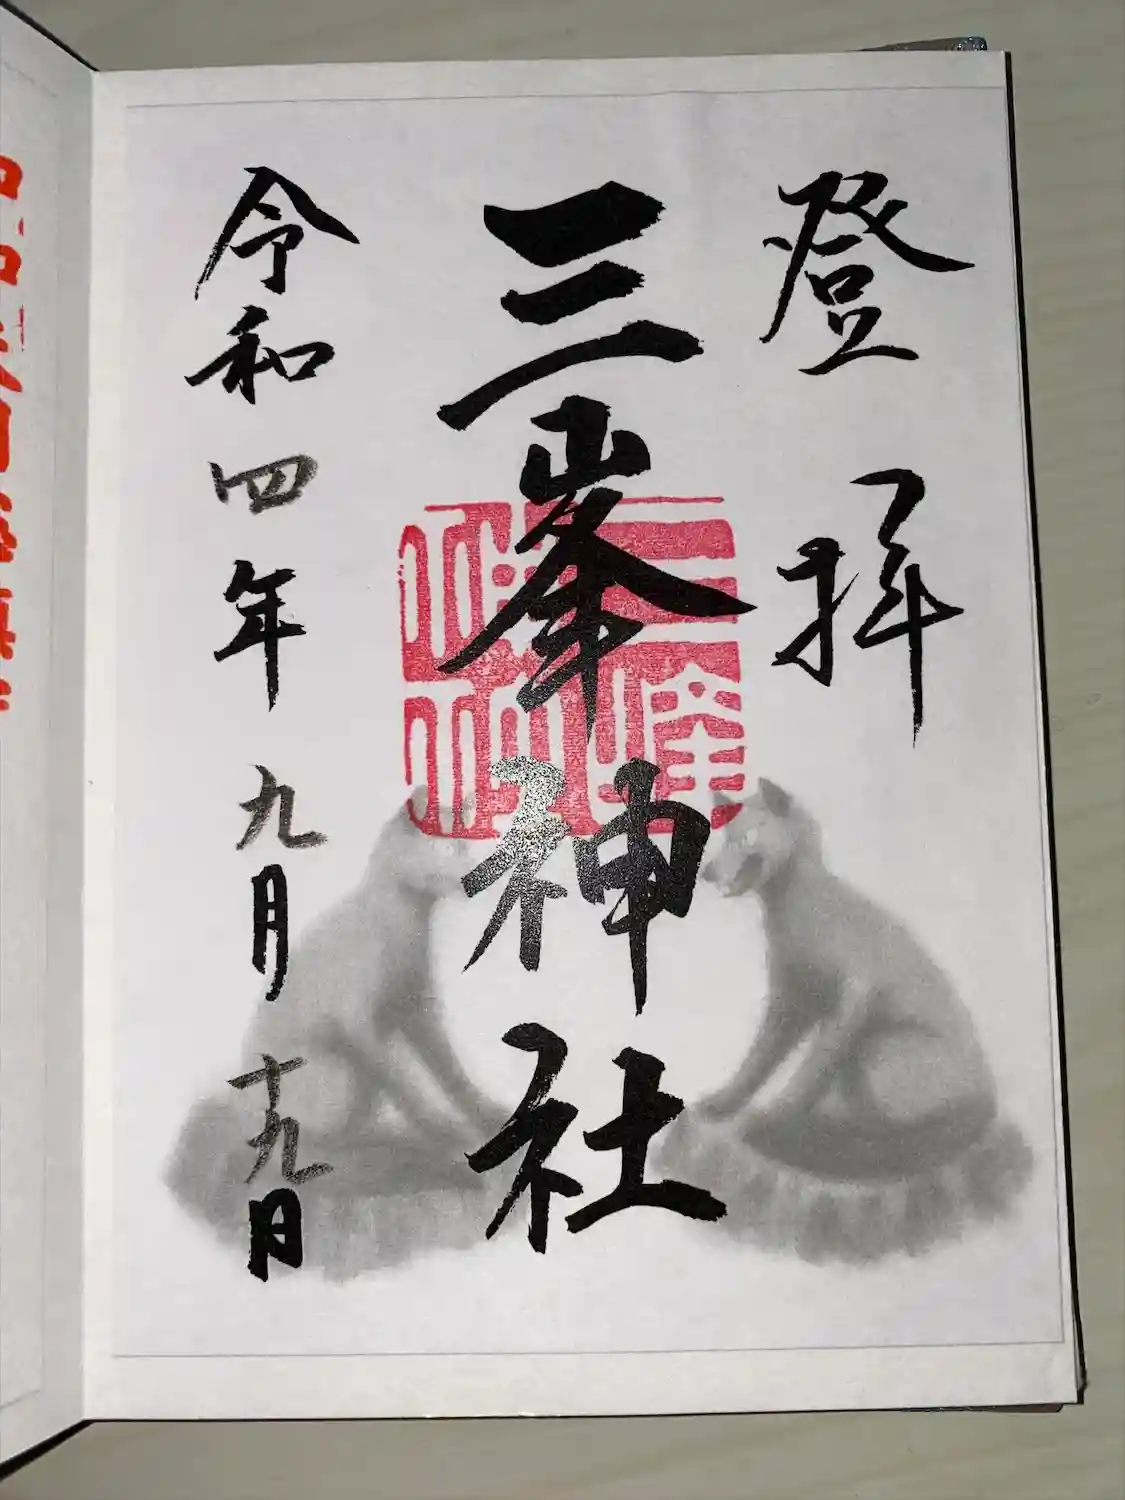 登拝
三峯神社
令和四年九月十九日